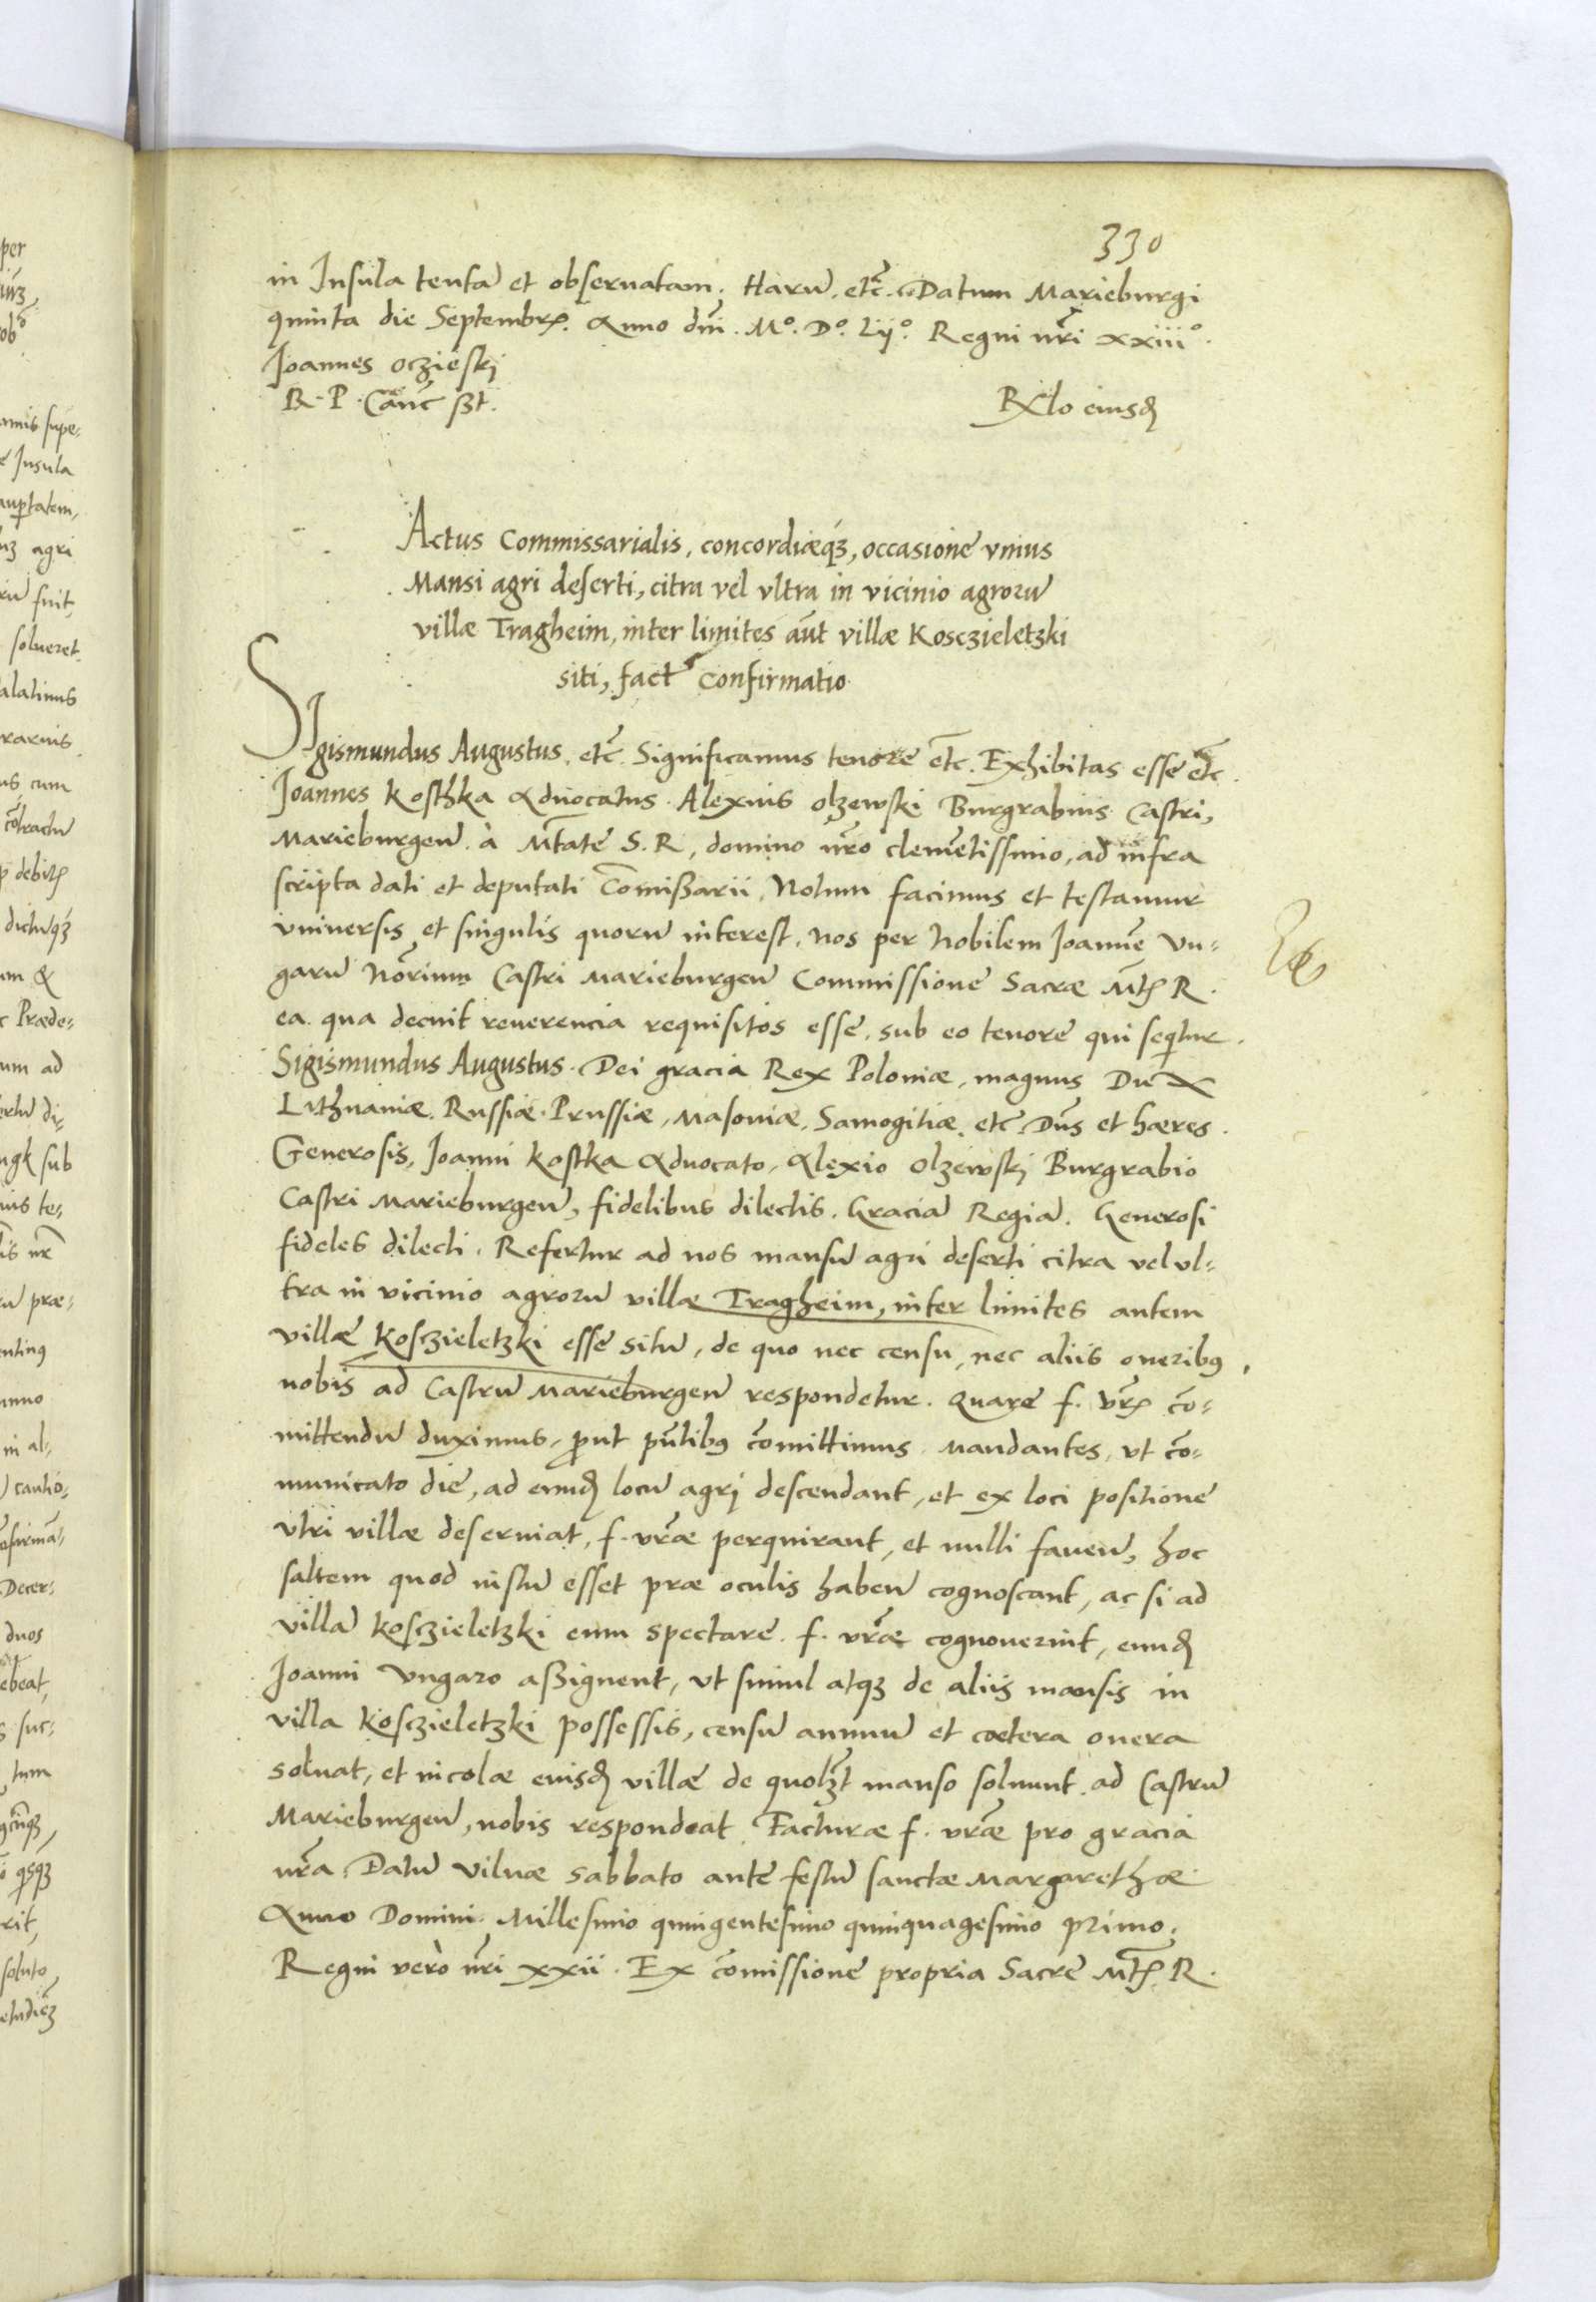 330
in Insula tentã et obseruatam. Harũ. etc̃. Datum Marieburgi
quinta die Septembrꝭ. Anno dñi. Mº. Dº. Lijº. Regni nr̃i xxiiiº.
Joannes oczieskj
R. P. Canc̃ sst.
Rlo eiusdꝭ
Actus Commissarialis, concordiæqꝫ, occasione vnius
Mansi agri deserti, citra vel vltra in vicinio agrorũ
villæ Tragheim, inter limites aũt villæ Kosczieletzki
siti, fact̃ confirmatio
SIgismundus Augustus. etc̃. Significamus tenore etc̃. Exhibitas esse etc̃.
Joannes kosthka Aduocatus. Alexius olzewski Burgrabius Castri,
Marieburgeñ. à Mt̃ate S. R, domino nr̃o clemẽtissimo, ad infra
scripta dati et deputati Com̃issarii, Notum facimus et testamur
vniversis et singulis quorũ interest. nos per Nobilem Joannẽ Vn-
garũ Not̃rium Castri Marieburgeñ Commissione Sacræ Mt̃ꝭ R.
ea. qua decuit reuerencia requisitos esse. sub eo tenore qui seqtur.
Sigismundus Augustus. Dei gracia Rex Poloniæ, magnus Dux
Lithuaniæ. Russiæ. Prussiæ, Masouiæ, Samogitiæ. etc̃ Dñs et hæres.
Generosis, Joanni kostka Aduocato, Alexio olzewskj Burgrabio
Castri Marieburgeñ, fidelibus dilectis. Graciã Regiã. Generosi
fideles dilecti. Refertur ad nos mansũ agri deserti citra vel vl-
tra in vicinio agrorũ villæ Tragheim, inter limites autem
villæ Kosczieletzki esse sitũ, de quo nec censu, nec aliis oneribꝰ,
nobis ad Castrũ Marieburgeñ respondetur. Quare f. vr̃ꝭ cõ-
mittendũ duximus, prout pñtibꝰ cõmittimus mandantes, vt cõ-
municato die, ad eumdꝭ locũ agrj descendant, et ex loci positione
vtri villæ deserviat, f. vr̃æ perquirant, et nulli faueñ, hoc
saltem quod iustũ esset præ oculis habeñ cognoscant, ac si ad
villã kosczieletzki eum spectare. f. vr̃æ cognouerint, eumdꝭ
Joanni Vngaro assignent, vt simul atqꝫ de aliis mansis in
villa kosczieletzki possessis, censũ annuũ et cætera onera
soluat, et incolæ eiusdꝭ villæ de quolꝫt manso soluunt ad Castrũ
Marieburgeñ, nobis respondeat Facturæ f. vr̃æ pro gracia
nr̃a. Datũ Vilnæ sabbato ante festũ sanctæ Margarethæ
Anno Domini Millesimo quingentesimo quinquagesimo primo,
Regni vero nr̃i xxii. Ex cõmissione propria Sacre Mt̃ꝭ R.